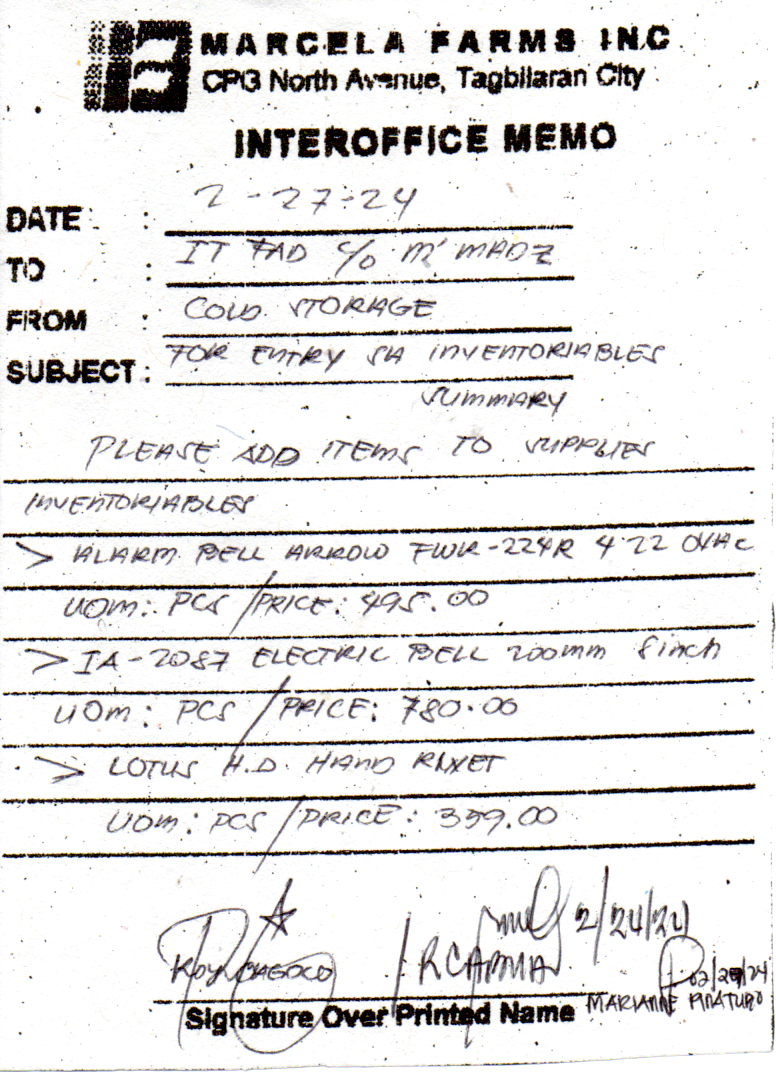 MARCELA FARMS INC
CPG North Avenue, Tagbilaran City
INTEROFFICE MEMO
DATE : 2-27-24
TO : IT FAD c/o M' MADZ
FROM : COLD STORAGE
SUBJECT : FOR ENTRY SA INVENTORIABLES
SUMMARY
PLEASE ADD ITEMS TO SUPPLIES
INVENTORIABLES
> ALARM BELL ARROW FWR-224R 4" 220VAC
UOM: PCS / PRICE: 495.00
> IA-2087 ELECTRIC BELL 200mm 8inch
UOM: PCS / PRICE: 780.00
> LOTUS H.D. HAND
UOM: PCS / PRICE: 359.00
2/24/24
MARIANNE
Signature Over Printed Name